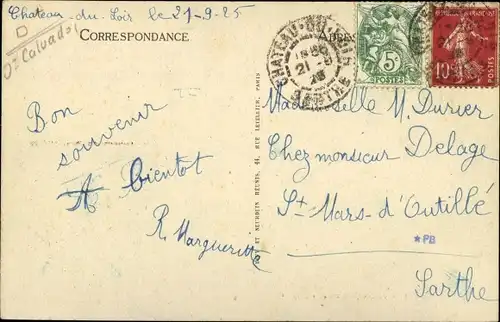 Chateau-du-Loir le 21-9-25
Dt Calvados
CORRESPONDANCE
Bon
souvenir
A bientot
R. Marguerite
CHATEAU-DU-LOIR
21-9
25
SARTHE
5c
POSTES
10c
POSTES
ET NEURDEIN RÉUNIS, 44, RUE LETELLIER, PARIS
Mademoiselle M. Durier
Chez monsieur Delage
St-Mars-d'Outillé
*PB
Sarthe